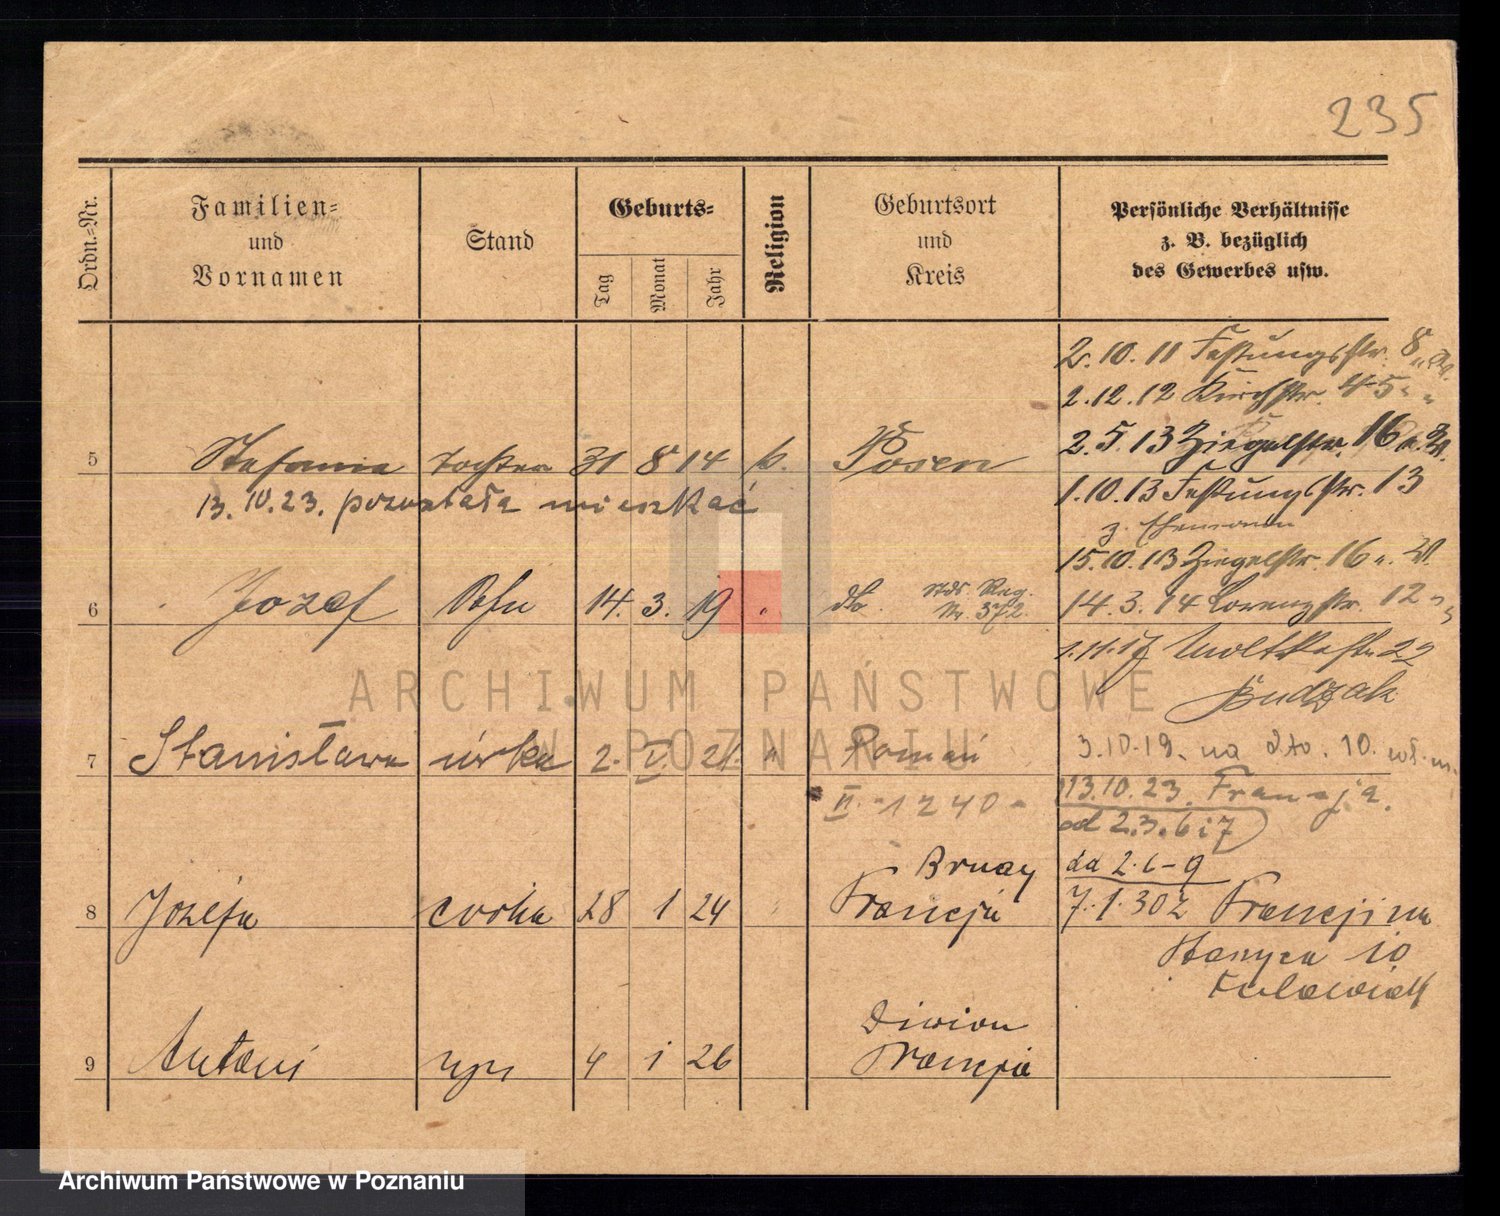 235
Ordn.-Nr.
Familien-
und
Vornamen
Stand
Geburts-
Tag
Monat
Jahr
Religion
Geburtsort
und
Kreis
Persönliche Verhältnisse
z. B. bezüglich
des Gewerbes usw.
2.10.11 Festungsstr. 8
2.12.12 Kirchstr. 45
2.5.13 Ziegelstr. 16
5 Stefania Tochter 31 8 14 k. Posen
1.10.13 Festungsstr. 13
13.10.23. pozostała mieszkać
z. Ehemann
15.10.13 Ziegelstr. 16
6 Jozef Sohn 14. 3. 19 " dto. Stds. Reg. Nr. 372.
14.3.14 Lorenzstr. 12
1.11.17 Moltkestr. 22
Budzak
7 Stanisława córka 2. V. 21. " Poznań
3.10.19. na dto. 10.
II. - 1240 -
13.10.23. Francja.
od 2.3.6 i 7
Bruay
8 Jozefa corka 28 1 24 Francja
7.1.30 z Francji na
10
Division
9 Antoni syn 4 1 26 Francja
ARCHIWUM PAŃSTWOWE
W POZNANIU
Archiwum Państwowe w Poznaniu